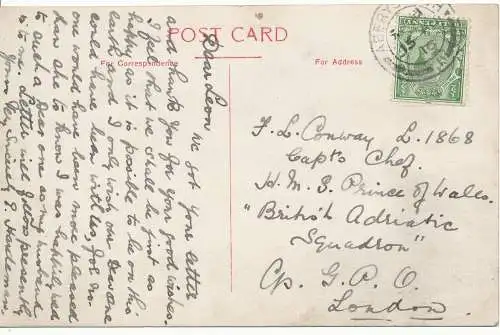 POST CARD
For Correspondence
For Address
Dear Leon
We got your letter
and thank you for your good wishes.
I feel that we shall be just as
happy as it is possible to be on this
earth and I only wish our Dear one
could have been with us, for no-
one would have been more pleased
than she to know I was happily wed
to such a dear one as my husband
is to me. Letter will follow presently.
Yours Very Sincerely E. Hardeman.
F. L. Conway L. 1868
Capt's Chef.
H. M. S. Prince of Wales.
"British Adriatic
Squadron"
C/o. G. P. O.
London.